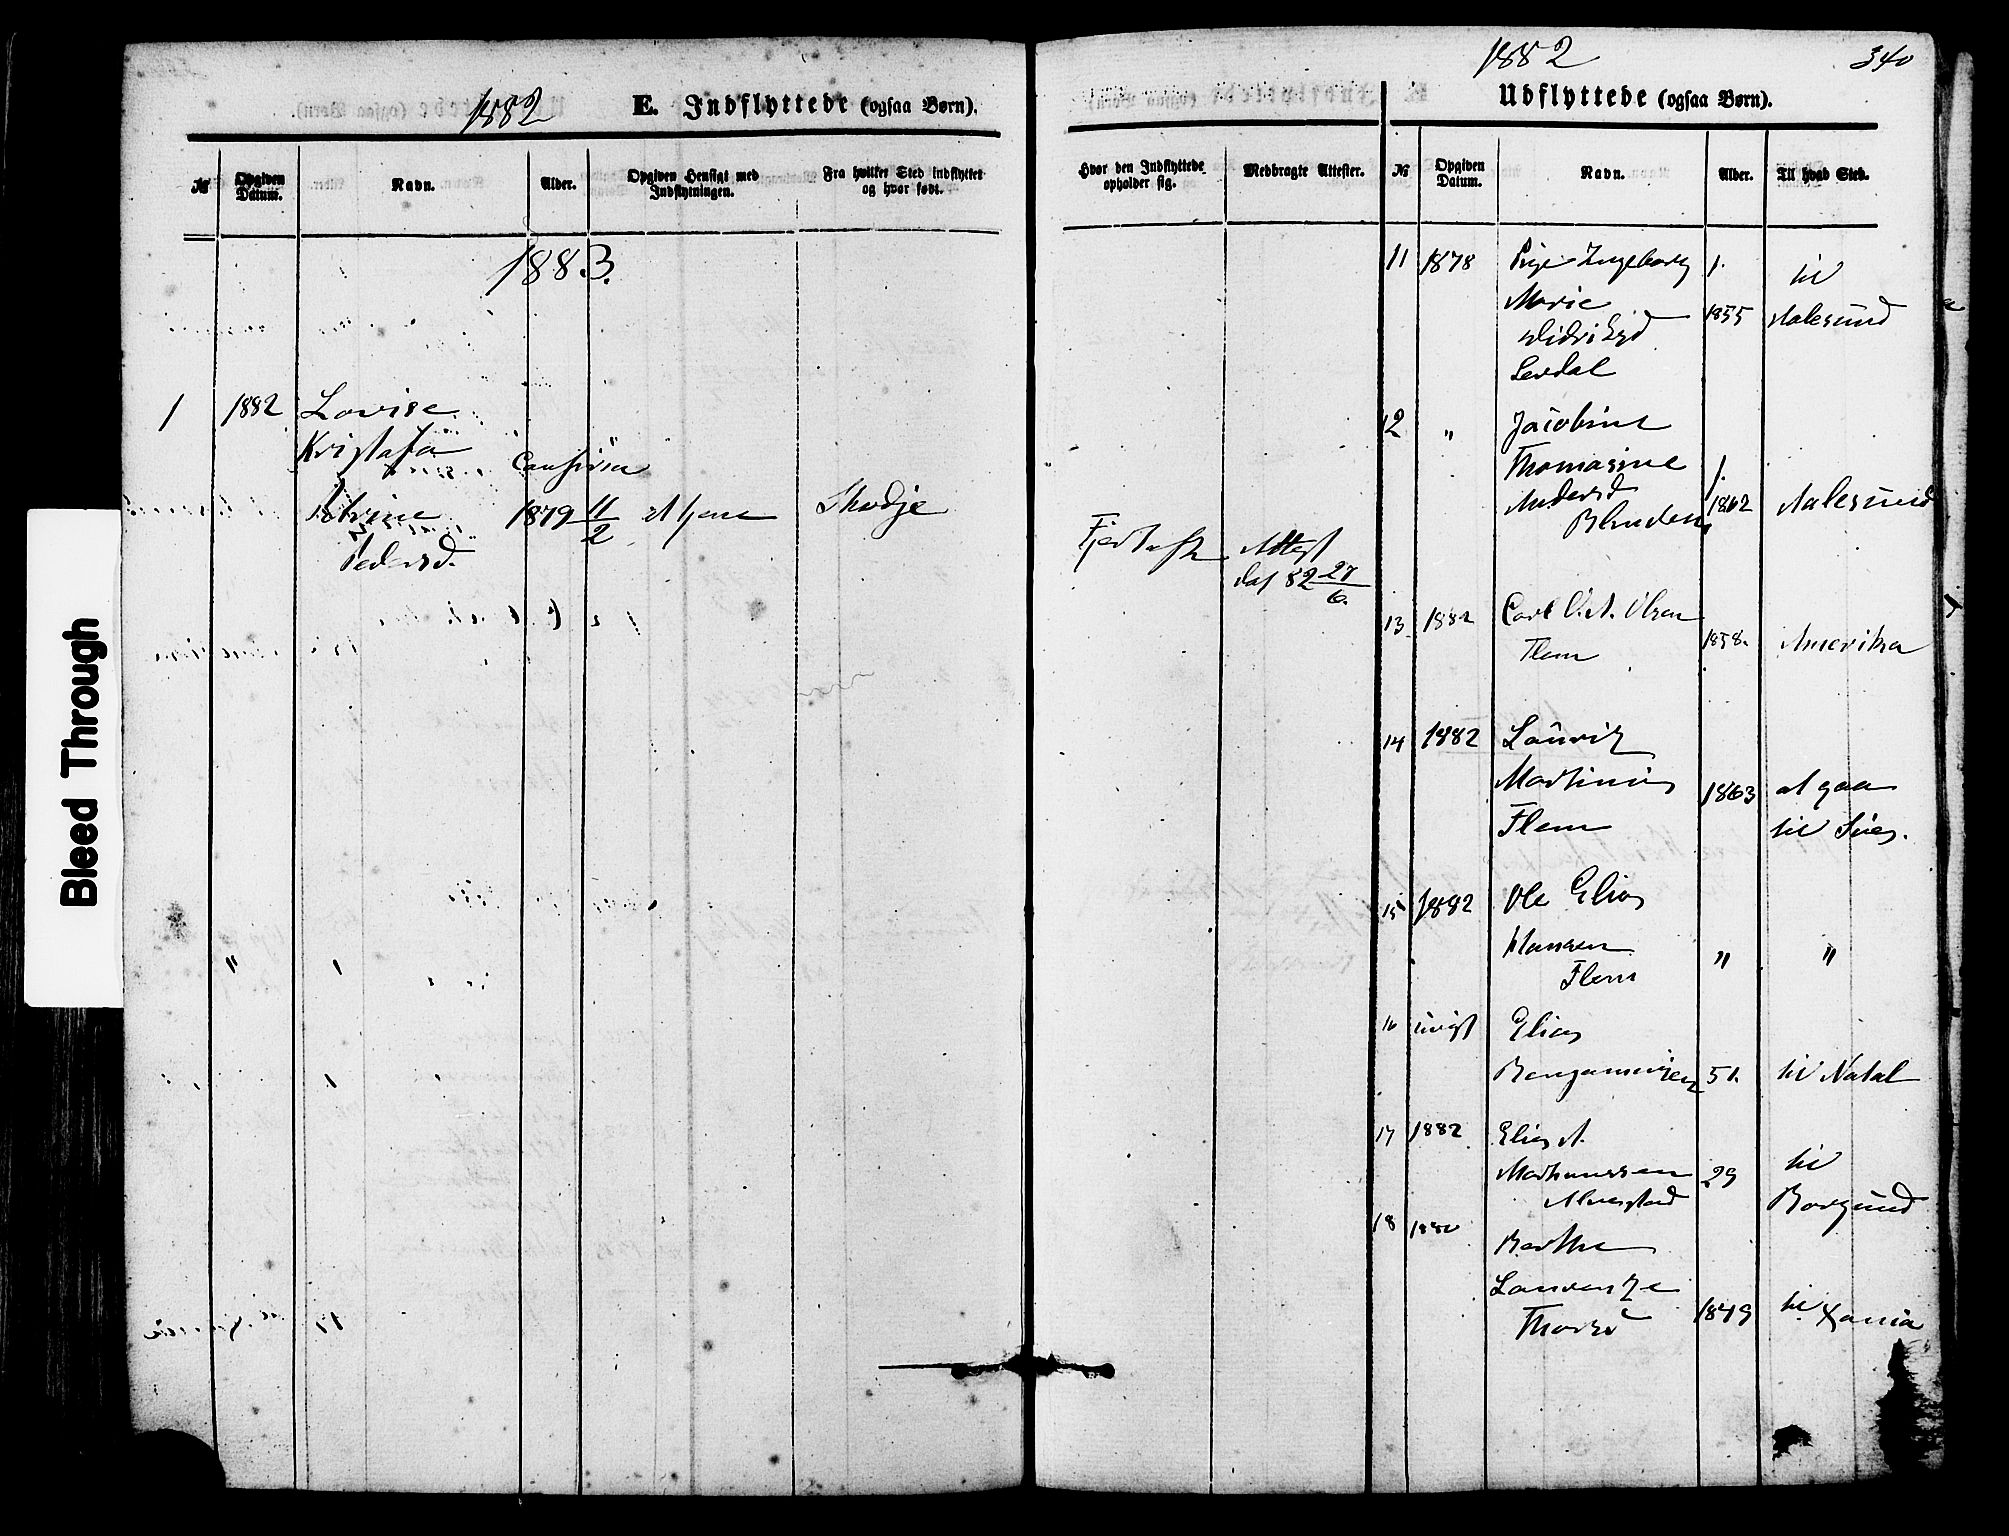 1882
E. Indflyttede (ogsaa Børn).
№
Opgiven Datum.
Navn.
Alder.
Opgiven Hensigt med Indflytningen.
Fra hvilket Sted indflyttet og hvor født.
1883.
1 1882 Lovise
Kristafa
Petrine 1879 11/2 at tjene Skodje
Pedersd.
Bleed Through
1882
340
Udflyttede (ogsaa Børn).
Hvor den Indflyttede opholder sig.
Medbragte Attester.
№
Opgiven Datum.
Navn.
Alder.
Til hvad Sted.
Fjertoft Attest
dat 82 27/6.
11 1878 Pige Ingeborg 1. til
Marie 1855 Aalesund
Didriksd
Lerdal
12 " Jacobine
Thomasine 1.
Andersd 1862 Aalesund
13 1882 Carl O. A. Olsen
Flem 1858. Amerika
14 1882 Laurits
Martinus 1863 at gaa
Flem til Søes.
15 1882 Ole Elias
Hansen " "
Flem
16 Elias
Benjaminsen 51. til Natal
17 1882 Elias A.
Martinussen 29 til
Alnestad Borgund
18 1882 Berthe
Laurentze
Thorsd 1849 til Xania